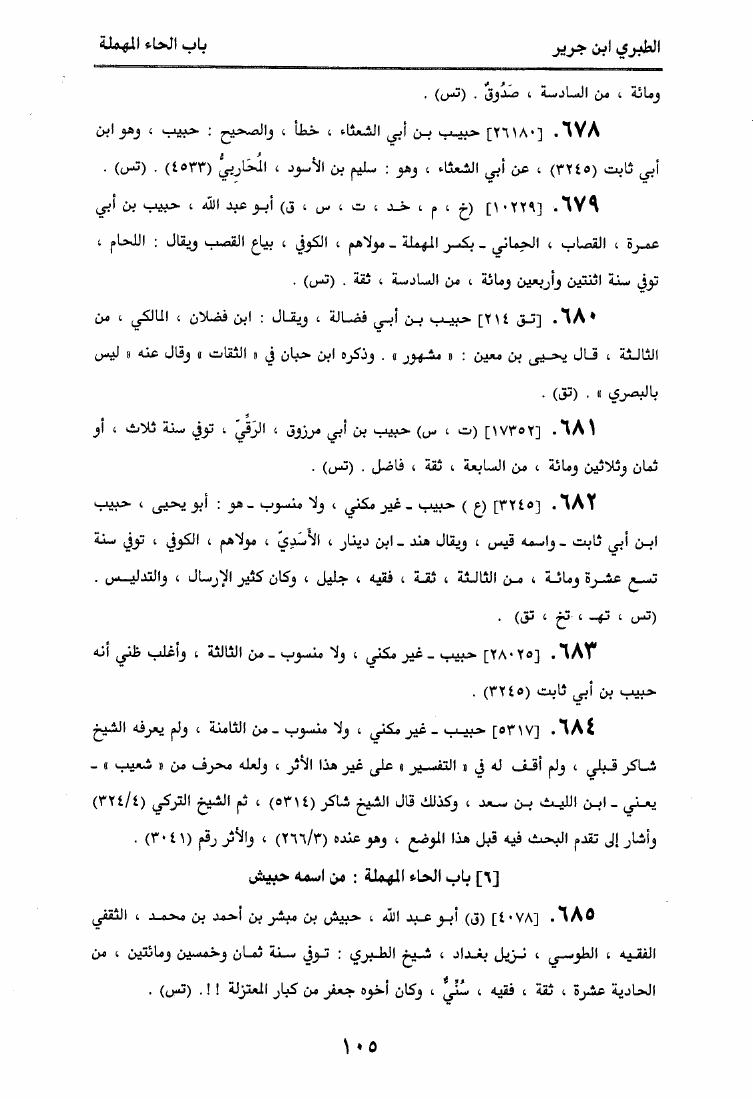 الطبري ابن جرير
باب الحاء المهملة
ومائة ، من السادسة ، صَدُوقٌ . (تس) .
٦٧٨. [٢٦١٨٠] حبيب بن أبي الشعثاء ، خطأ ، والصحيح : حبيب ، وهو ابن
أبي ثابت (٣٢٤٥) ، عن أبي الشعثاء ، وهو : سليم بن الأسود ، المُحَارِبيُّ (٤٥٣٣) . (تس) .
٦٧٩. [١٠٢٢٩] (خ ، م ، خد ، ت ، س ، ق) أبو عبد الله ، حبيب بن أبي
عمرة ، القصاب ، الحِماني ـ بكسر المهملة ـ مولاهم ، الكوفي ، بياع القصب ويقال : اللحام ،
توفي سنة اثنتين وأربعين ومائة ، من السادسة ، ثقة . (تس) .
٦٨٠. [تق ٢١٤] حبيب بن أبي فضالة ، ويقال : ابن فضلان ، المالكي ، من
الثالثة ، قال يحيى بن معين : « مشهور » . وذكره ابن حبان في « الثقات » وقال عنه « ليس
بالبصري » . (تق) .
٦٨١. [١٧٣٥٢] (ت ، س) حبيب بن أبي مرزوق ، الرَقِّيّ ، توفي سنة ثلاث ، أو
ثمان وثلاثين ومائة ، من السابعة ، ثقة ، فاضل . (تس) .
٦٨٢. [٣٢٤٥] (ع ) حبيب ـ غير مكني ، ولا منسوب ـ هو : أبو يحيى ، حبيب
ابن أبي ثابت ـ واسمه قيس ، ويقال هند ـ ابن دينار ، الأَسَدِيّ ، مولاهم ، الكوفي ، توفي سنة
تسع عشرة ومائة ، من الثالثة ، ثقة ، فقيه ، جليل ، وكان كثير الإرسال ، والتدليس .
(تس ، تهـ ، تخ ، تق) .
٦٨٣. [٢٨٠٢٥] حبيب ـ غير مكني ، ولا منسوب ـ من الثالثة ، وأغلب ظني أنه
حبيب بن أبي ثابت (٣٢٤٥) .
٦٨٤. [٥٣١٧] حبيب ـ غير مكني ، ولا منسوب ـ من الثامنة ، ولم يعرفه الشيخ
شاكر قبلي ، ولم أقف له في « التفسير » على غير هذا الأثر ، ولعله محرف من « شعيب » ـ
يعني ـ ابن الليث بن سعد ، وكذلك قال الشيخ شاكر (٥٣١٤) ، ثم الشيخ التركي (٣٢٤/٤)
وأشار إلى تقدم البحث فيه قبل هذا الموضع ، وهو عنده (٢٦٦/٣) ، والأثر رقم (٣٠٤١) .
[٦] باب الحاء المهملة : من اسمه حبيش
٦٨٥. [٤٠٧٨] (ق) أبو عبد الله ، حبيش بن مبشر بن أحمد بن محمد ، الثقفي
الفقيه ، الطوسي ، نزيل بغداد ، شيخ الطبري : توفي سنة ثمان وخمسين ومائتين ، من
الحادية عشرة ، ثقة ، فقيه ، سُنِّيٌّ ، وكان أخوه جعفر من كبار المعتزلة !!. (تس) .
١٠٥